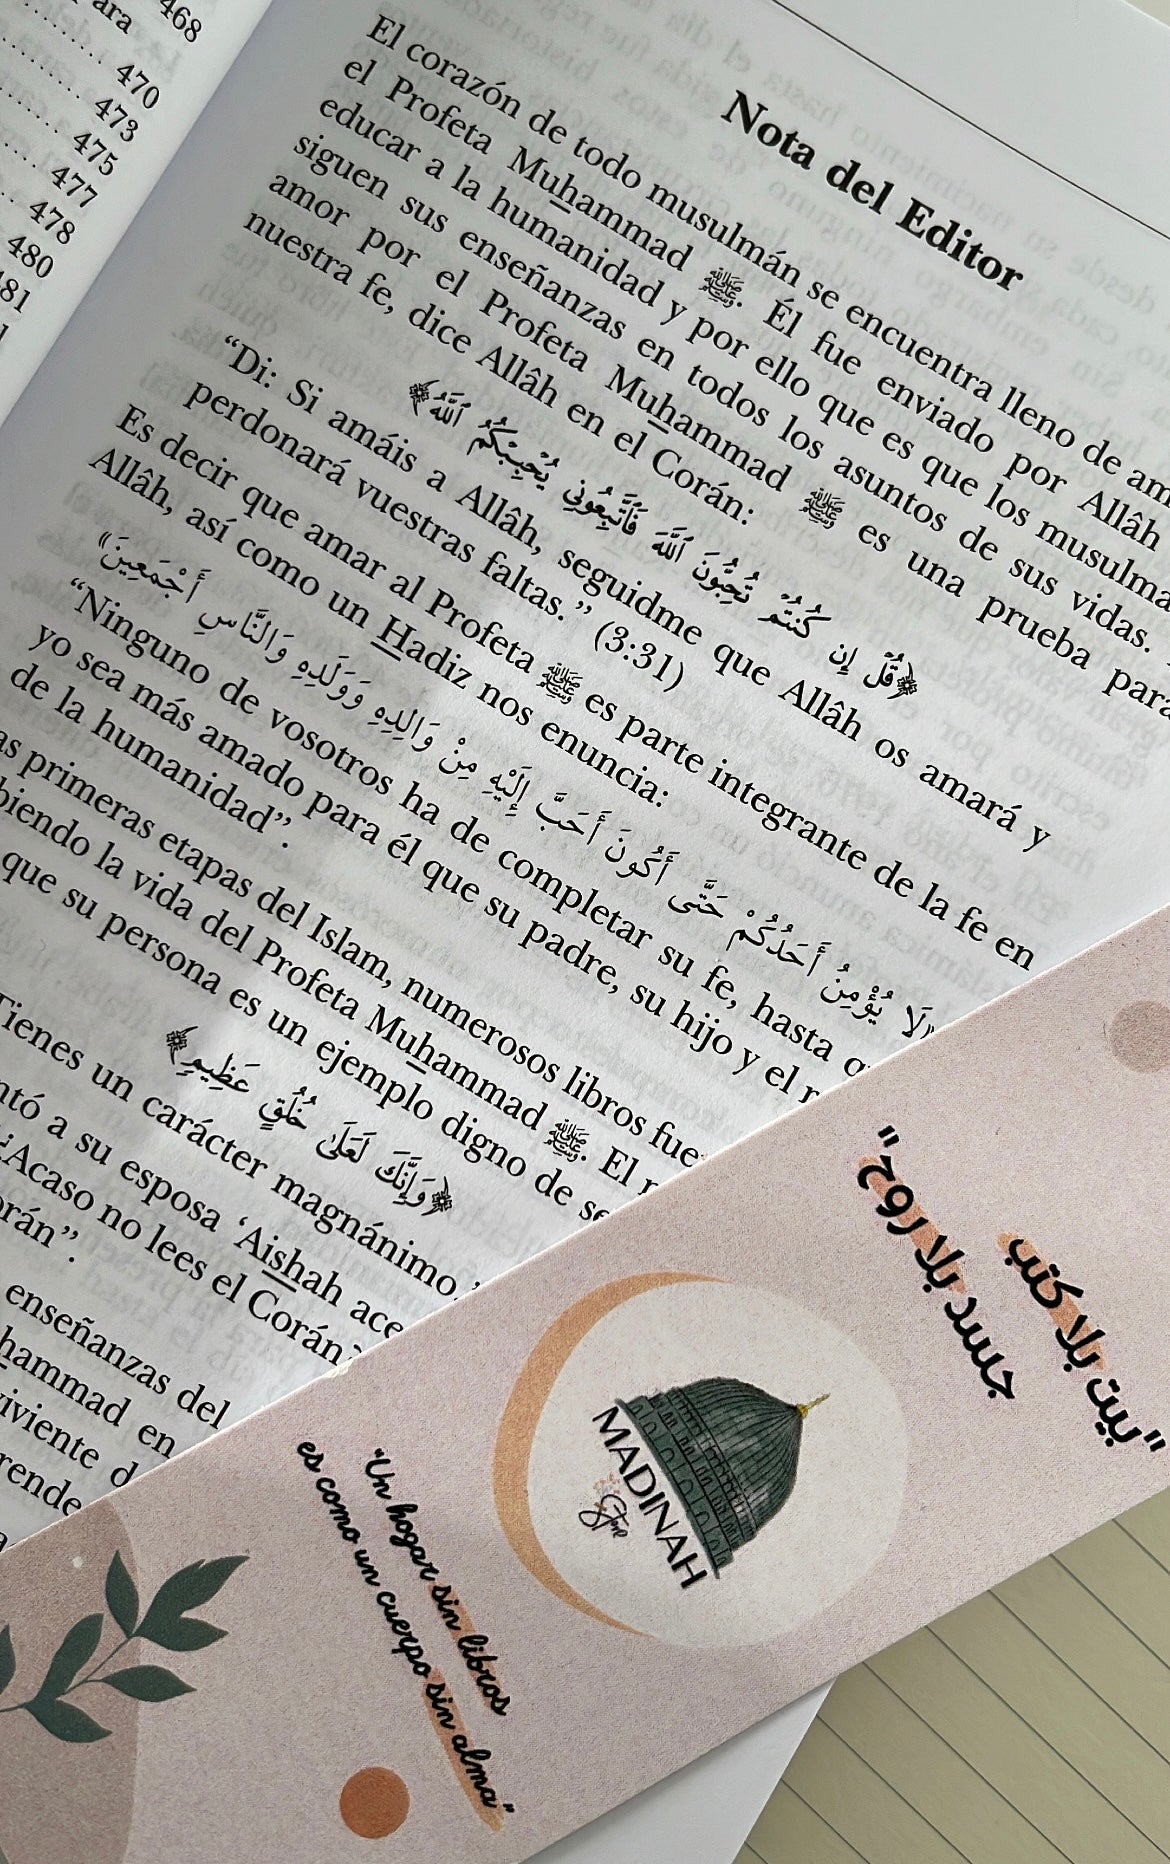 468
ara
470
473
475
477
478
480
481
Nota del Editor
El corazón de todo musulmán se encuentra lleno de am
el Profeta Muhammad ﷺ. Él fue enviado por Allâh
educar a la humanidad y por ello que es que los musulma
siguen sus enseñanzas en todos los asuntos de sus vidas.
amor por el Profeta Muhammad ﷺ es una prueba para
nuestra fe, dice Allâh en el Corán:
﴿قُلْ إِن كُنتُمْ تُحِبُّونَ ٱللَّهَ فَٱتَّبِعُونِى يُحْبِبْكُمُ ٱللَّهُ﴾
“Di: Si amáis a Allâh, seguidme que Allâh os amará y
perdonará vuestras faltas.” (3:31)
Es decir que amar al Profeta ﷺ es parte integrante de la fe en
Allâh, así como un Hadiz nos enuncia:
«لَا يُؤْمِنُ أَحَدُكُمْ حَتَّى أَكُونَ أَحَبَّ إِلَيْهِ مِنْ وَالِدِهِ وَوَلَدِهِ وَالنَّاسِ أَجْمَعِينَ»
“Ninguno de vosotros ha de completar su fe, hasta q
yo sea más amado para él que su padre, su hijo y el r
de la humanidad”.
as primeras etapas del Islam, numerosos libros fue
biendo la vida del Profeta Muhammad ﷺ. El
que su persona es un ejemplo digno de se
﴿وَإِنَّكَ لَعَلَىٰ خُلُقٍ عَظِيمٍ﴾
Tienes un carácter magnánimo.
ntó a su esposa ‘Aishah ace
¿Acaso no lees el Corán?
orán”.
enseñanzas del
hammad en
viviente d
rende
"بيت بلا كتب
جسد بلا روح"
MADINAH
Store
"Un hogar sin libros
es como un cuerpo sin alma"